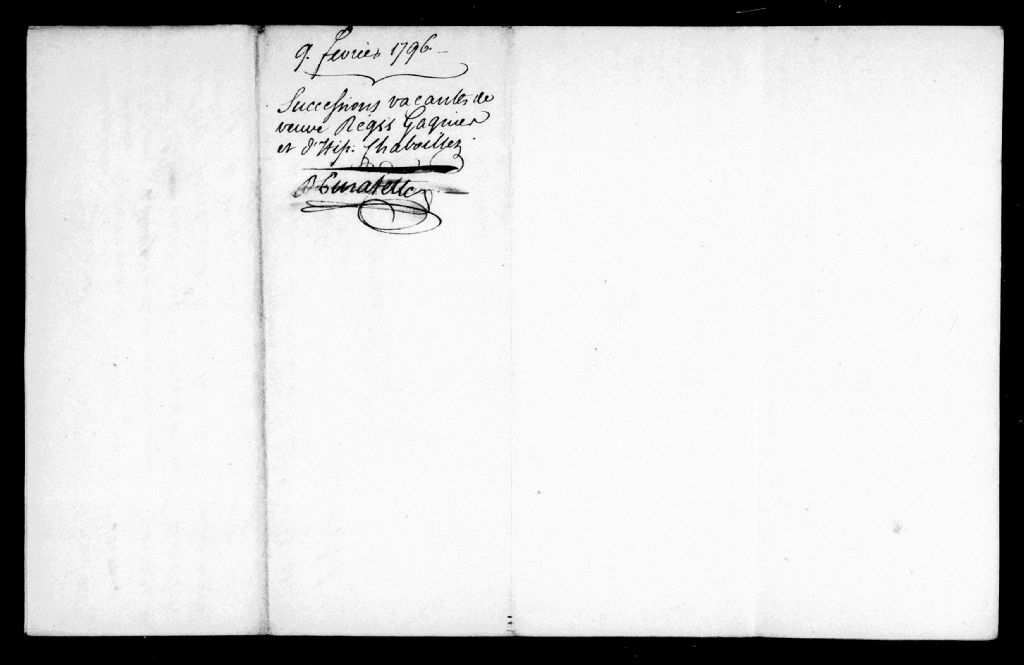 9. fevrier 1796
Successions vacantes de
veuve Régis Gagnier
et d'Hip: Chaboillez
Curatelle